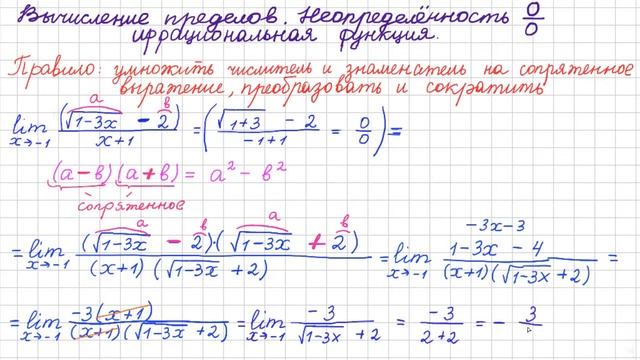 Вычисление пределов. Неопределённость 0/0
иррациональная функция.
Правило: умножить числитель и знаменатель на сопряженное
выражение, преобразовать и сократить
a в
lim x→-1 (√(1-3x) - 2)/(x+1) = ( (√(1+3) - 2)/(-1+1) = 0/0 ) =
(a-в)(a+в) = a² - в²
сопряженное
a в a в
-3x-3
= lim x→-1 ((√(1-3x) - 2)·(√(1-3x) + 2))/((x+1)(√(1-3x) + 2)) = lim x→-1 (1-3x - 4)/((x+1)(√(1-3x) + 2)) =
= lim x→-1 (-3(x+1))/((x+1)(√(1-3x) + 2)) = lim x→-1 (-3)/(√(1-3x) + 2) = (-3)/(2+2) = - 3/